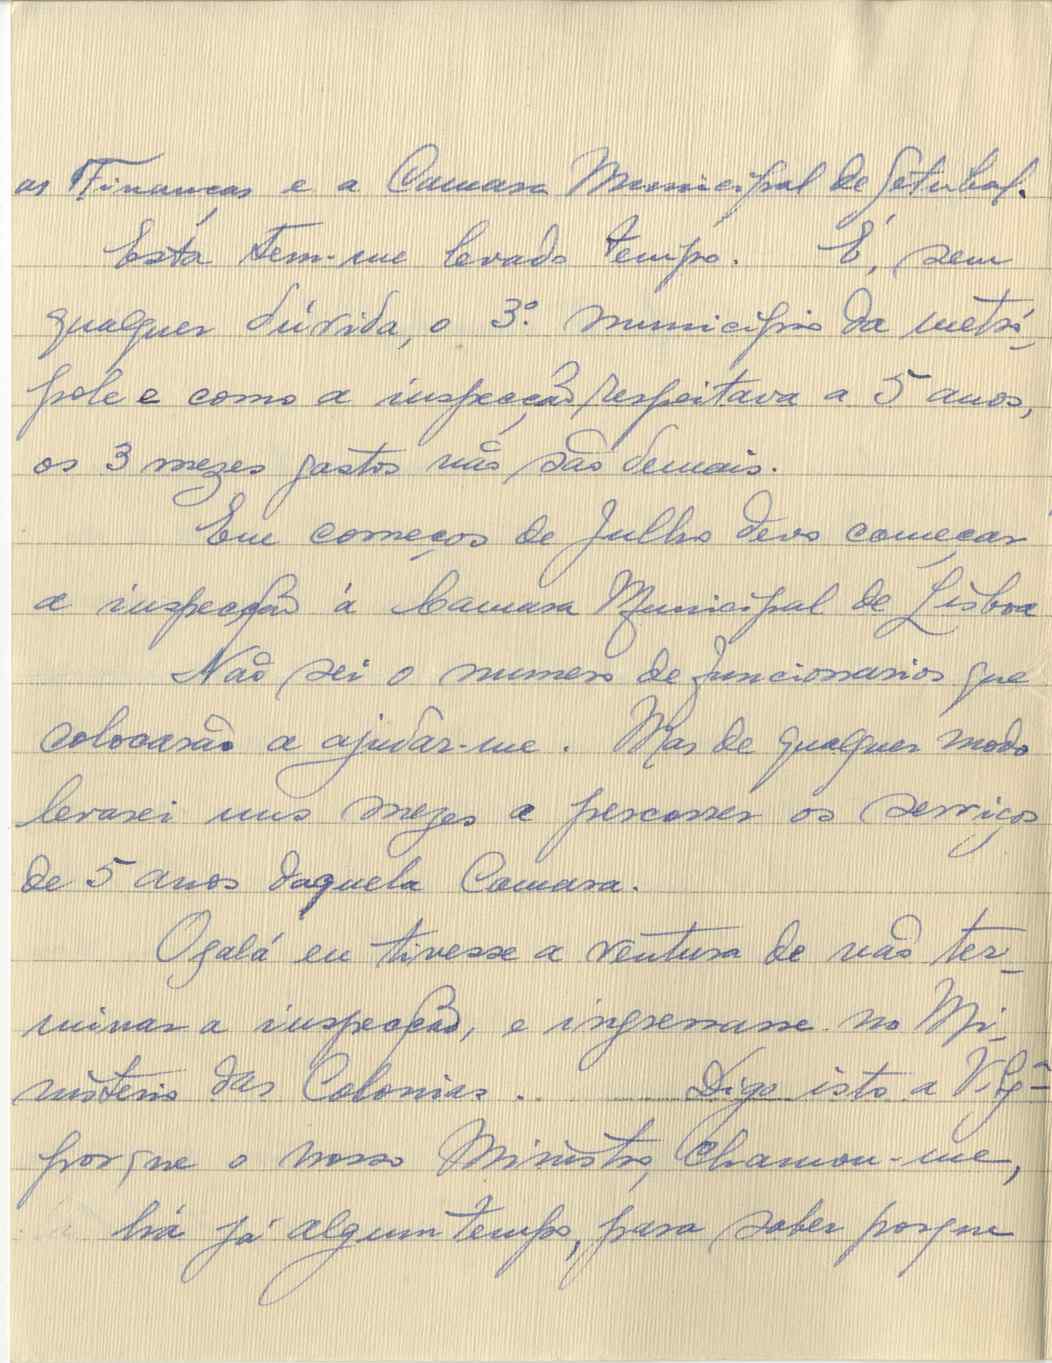 as Finanças e a Camara Municipal de Setubal.
Esta tem-me levado tempo. É, sem
qualquer dúvida, o 3º municipio da metró-
pole e como a inspecção respeitava a 5 anos,
os 3 mezes gastos não são demais.
Em começos de Julho devo começar
a inspecção á Camara Municipal de Lisboa
Não sei o numero de funcionarios que
colocarão a ajudar-me. Mas de qualquer modo
levarei uns mezes a percorrer os serviços
de 5 anos daquela Camara.
Oxalá eu tivesse a ventura de não ter-
minar a inspecção, e ingressasse no Mi-
nisterio das Colonias. Digo isto a
porque o nosso Ministro, chamou-me,
há já algum tempo, para saber porque